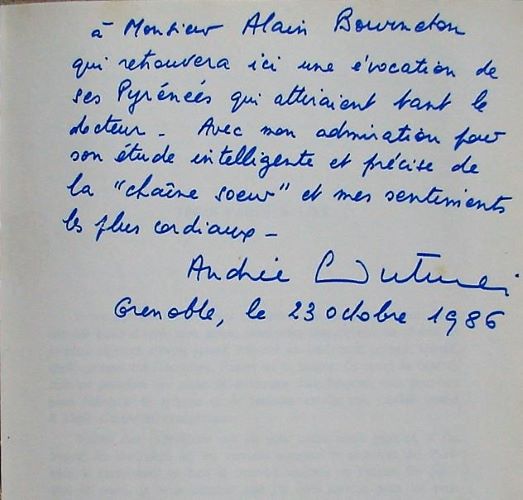 à Monsieur Alain Bourneton
qui retrouvera ici une évocation de
ses Pyrénées qui attiraient tant le
docteur - Avec mon admiration pour
son étude intelligente et précise de
la "chaîne soeur" et mes sentiments
les plus cordiaux -
Andrée
Grenoble, le 23 octobre 1986